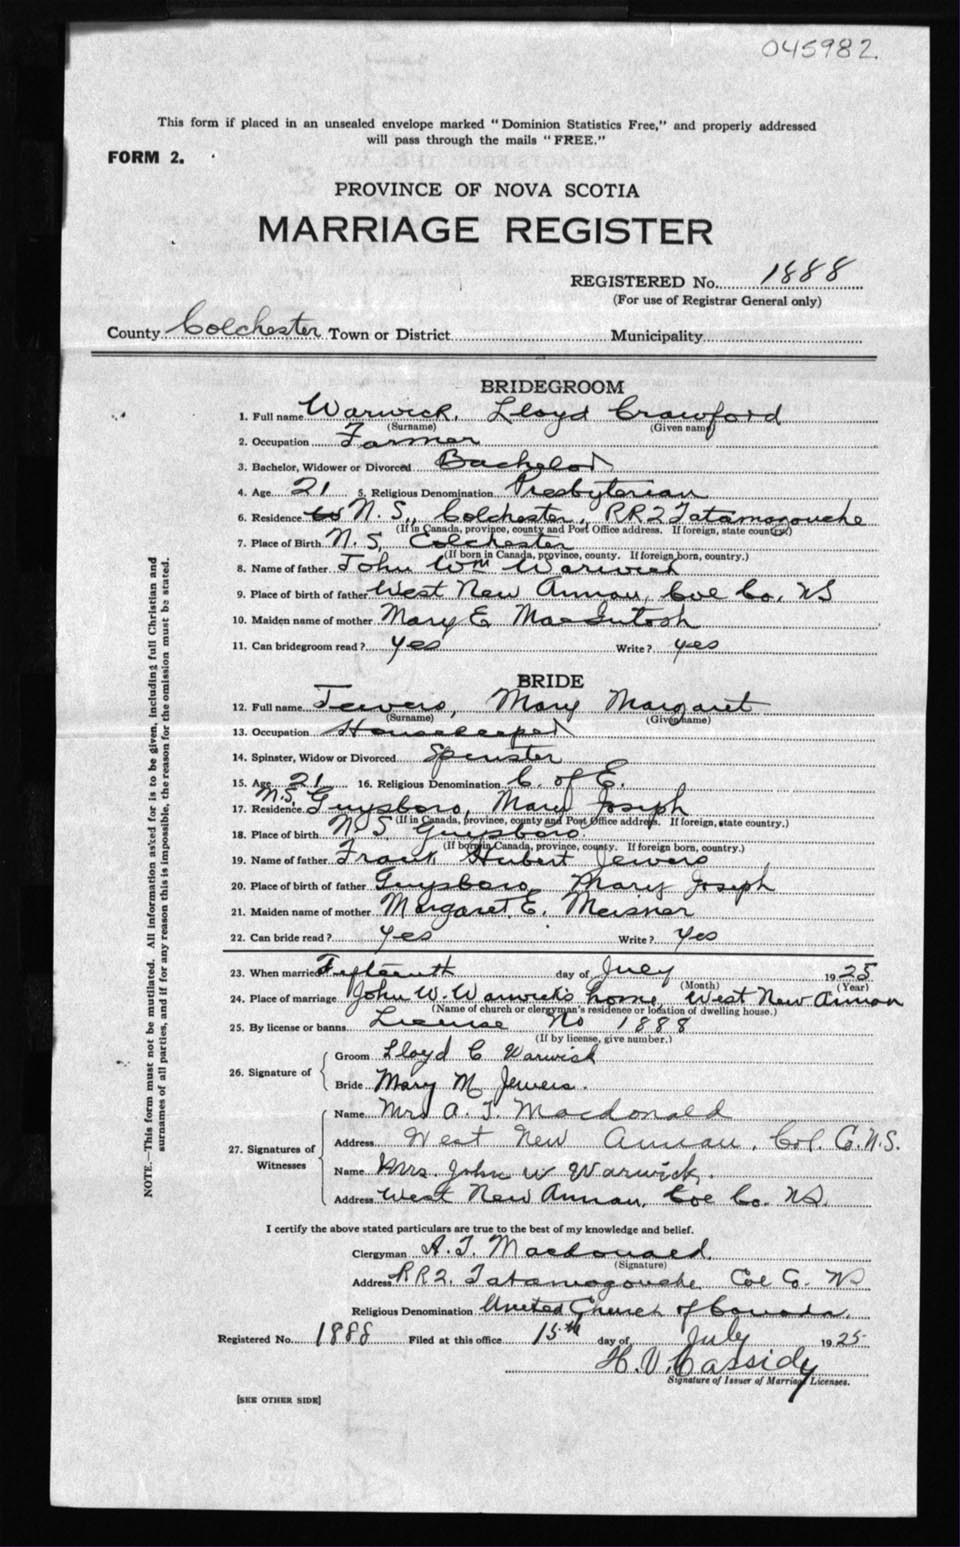 045982.
This form if placed in an unsealed envelope marked "Dominion Statistics Free," and properly addressed
will pass through the mails "FREE."
FORM 2.
PROVINCE OF NOVA SCOTIA
MARRIAGE REGISTER
REGISTERED No. 1888
(For use of Registrar General only)
County Colchester Town or District Municipality
BRIDEGROOM
1. Full name Warwick, Lloyd Crawford
(Surname) (Given name)
2. Occupation Farmer
3. Bachelor, Widower or Divorced Bachelor
4. Age 21 5. Religious Denomination Presbyterian
6. Residence N. S., Colchester, RR2 Tatamagouche
(If in Canada, province, county and Post Office address. If foreign, state country.)
7. Place of Birth N. S, Colchester
(If born in Canada, province, county. If foreign born, country.)
8. Name of father John Wm Warwick
9. Place of birth of father West New Annan, Col Co. NS
10. Maiden name of mother Mary E MacIntosh
11. Can bridegroom read? yes Write? yes
BRIDE
12. Full name Jewers, Mary Margaret
(Surname) (Given name)
13. Occupation Housekeeper
14. Spinster, Widow or Divorced Spinster
15. Age 21 16. Religious Denomination C. of E.
17. Residence N.S. Guysboro, Mary Joseph
(If in Canada, province, county and Post Office address. If foreign, state country.)
18. Place of birth N. S. Guysboro
(If born in Canada, province, county. If foreign born, country.)
19. Name of father Frank Hubert Jewers
20. Place of birth of father Guysboro, Mary Joseph
21. Maiden name of mother Margaret E. Meisner
22. Can bride read? yes Write? yes
23. When married Fifteenth day of July 1925
(Month) (Year)
24. Place of marriage John W. Warwick's home, West New Annan
(Name of church or clergyman's residence or location of dwelling house.)
25. By license or banns License No 1888
(If by license, give number.)
26. Signature of Groom Lloyd C Warwick
Bride Mary M Jewers.
27. Signatures of Witnesses
Name Mrs A. T. Macdonald
Address West New Annan, Col. Co. N.S.
Name Mrs. John W Warwick.
Address West New Annan, Col Co. NS.
I certify the above stated particulars are true to the best of my knowledge and belief.
Clergyman A. T. Macdonald.
(Signature)
Address RR2, Tatamagouche Col Co. NS
Religious Denomination United Church of Canada.
Registered No. 1888 Filed at this office 15th day of July 1925
H. V. Cassidy
Signature of Issuer of Marriage Licenses.
[SEE OTHER SIDE]
NOTE.—This form must not be mutilated. All information asked for is to be given, including full Christian and
surnames of all parties, and if for any reason this is impossible, the reason for the omission must be stated.